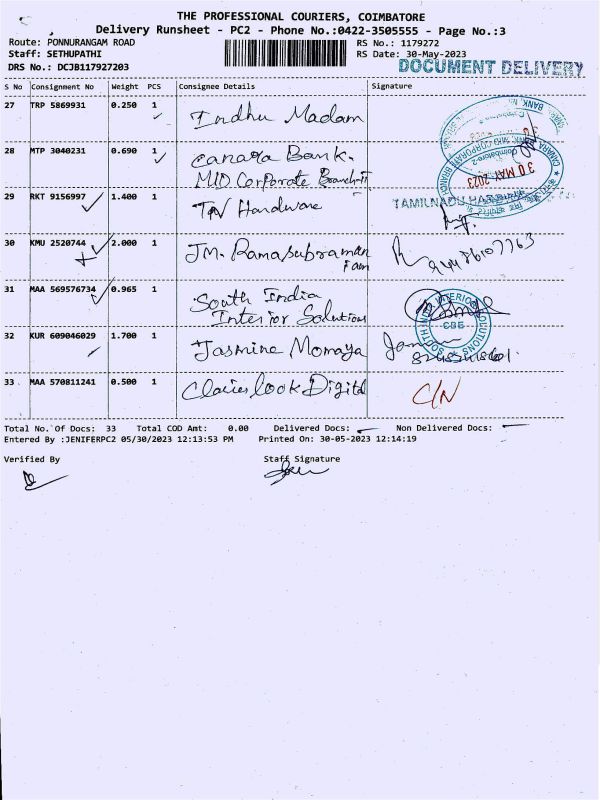 THE PROFESSIONAL COURIERS, COIMBATORE
Delivery Runsheet - PC2 - Phone No.:0422-3505555 - Page No.:3
Route: PONNURANGAM ROAD RS No.: 1179272
Staff: SETHUPATHI RS Date: 30-May-2023
DRS No.: DCJB117927203 DOCUMENT DELIVERY
S No Consignment No Weight PCS Consignee Details Signature
27 TRP 5869931 0.250 1 Indhu Madam
28 MTP 3040231 0.690 1 Canara Bank.
MID Corporate Branch-II
30 MAY 2023
29 RKT 9156997 1.400 1 TN Hardware TAMILNADU
30 KMU 2520744 2.000 1 JM. Ramasubraman
31 MAA 569576734 0.965 1 South India
Interior Solutions
CBE
32 KUR 609046029 1.700 1 Jasmine Momaya
33 MAA 570811241 0.500 1 Digital C/N
Total No. Of Docs: 33 Total COD Amt: 0.00 Delivered Docs: Non Delivered Docs:
Entered By :JENIFERPC2 05/30/2023 12:13:53 PM Printed On: 30-05-2023 12:14:19
Verified By Staff Signature